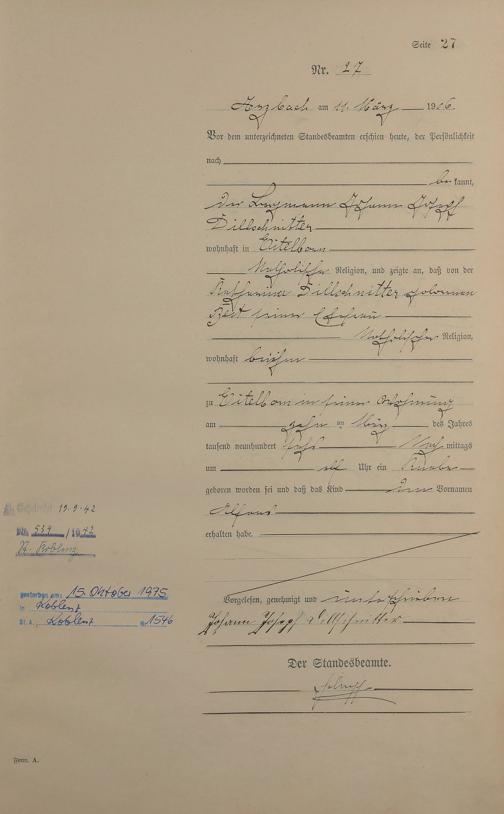 Seite 27
Nr. 27
Arzbach am 11. März 1906
Vor dem unterzeichneten Standesbeamten erschien heute, der Persönlichkeit
nach
be kannt,
der Bergmann Johann Josef
Dillschnitter
wohnhaft in Eitelborn
katholischer Religion, und zeigte an, daß von der
Katharina Dillschnitter geborenen
seiner Ehefrau
katholischer Religion,
wohnhaft bei ihm
zu Eitelborn in seiner Wohnung
am zehn ten März des Jahres
tausend neunhundert sechs Nach mittags
um elf Uhr ein Knabe
geboren worden sei und daß das Kind den Vornamen
Alfons
erhalten habe.
Vorgelesen, genehmigt und unterschrieben
Johann Joseph Dillschnitter
Der Standesbeamte.
19.9.42
Nr. 539 / 1942
Koblenz
gestorben am: 15. Oktober 1975
in Koblenz
St.A. Koblenz 1546
Form. A.